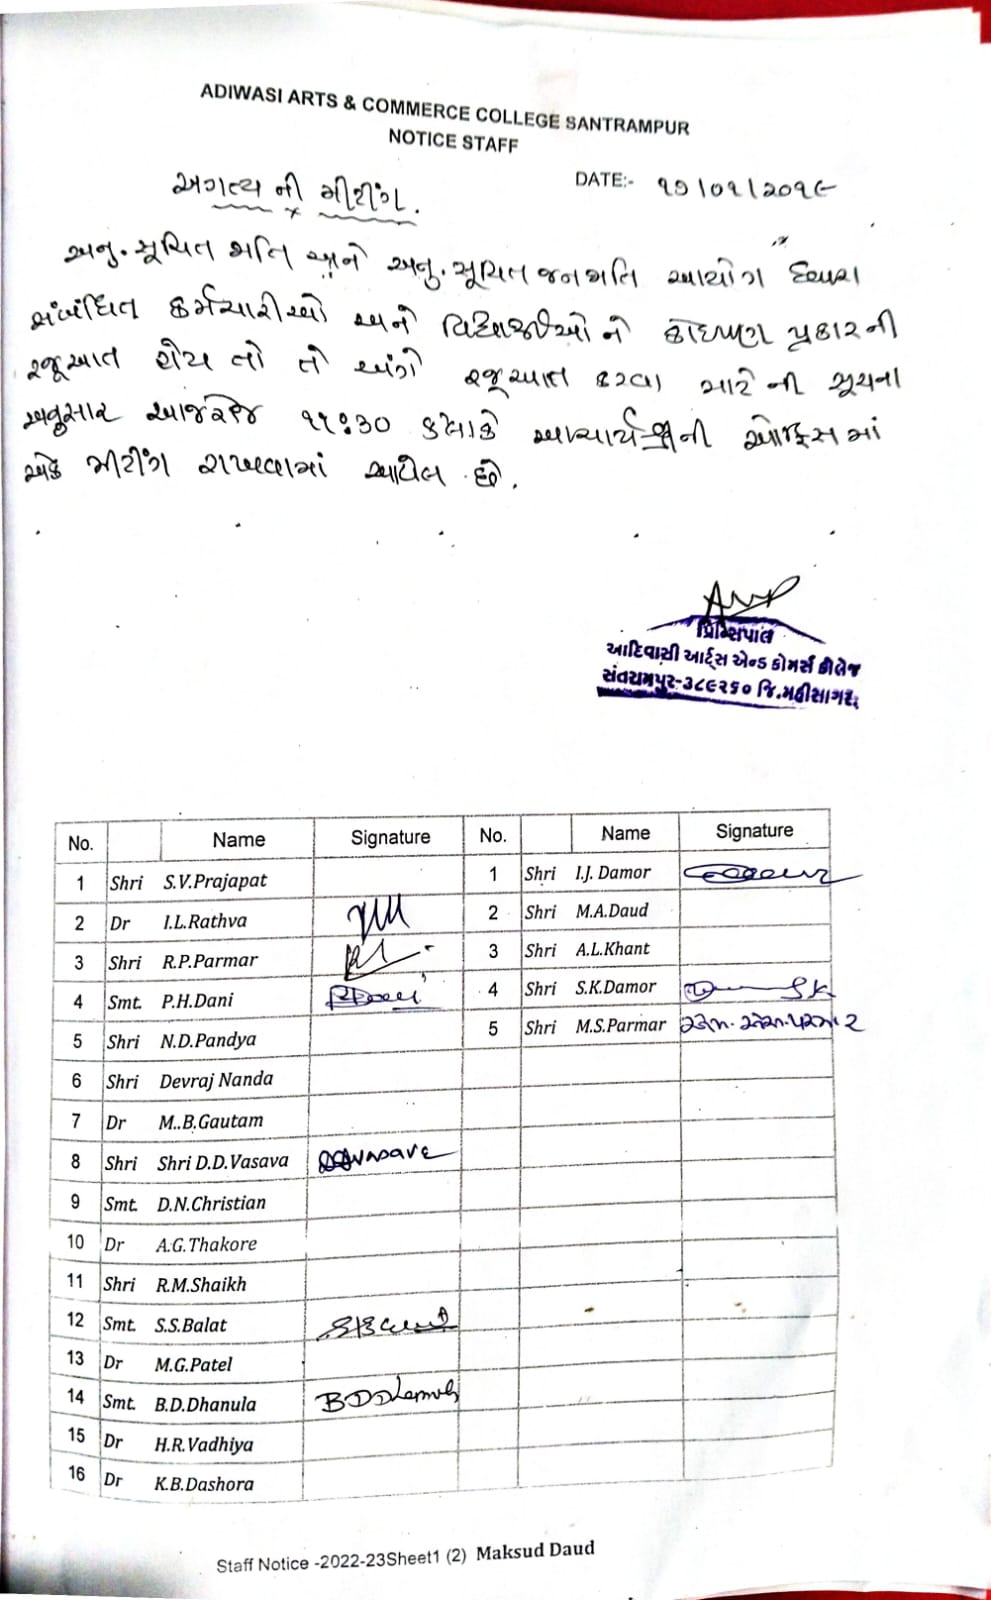 ADIWASI ARTS & COMMERCE COLLEGE SANTRAMPUR
NOTICE STAFF
DATE:-
અગત્ય ની મીટીંગ.
અનુ. સૂચિત જાતિ અને અનુ. સૂચિત જનજાતિ આયોગ દ્વારા
સંબંધિત કર્મચારીઓ અને વિદ્યાર્થીઓ ને કોઇપણ પ્રકારની
રજૂઆત હોય તો તે અંગે રજૂઆત કરવા માટે ની સૂચના
અનુસાર આજરોજ ૧૧:૩૦ કલાકે આચાર્યશ્રીની ઓફિસ માં
એક મીટીંગ રાખવામાં આવેલ છે.
પ્રિન્સિપાલ
આદિવાસી આર્ટ્સ એન્ડ કોમર્સ કોલેજ
સંતરામપુર-૩૮૯૨૬૦ જિ.મહીસાગર
No. Name Signature No. Name Signature
1 Shri S.V.Prajapat 1 Shri I.J. Damor
2 Dr I.L.Rathva 2 Shri M.A.Daud
3 Shri R.P.Parmar 3 Shri A.L.Khant
4 Smt. P.H.Dani 4 Shri S.K.Damor SK
5 Shri N.D.Pandya 5 Shri M.S.Parmar
6 Shri Devraj Nanda
7 Dr M..B.Gautam
8 Shri Shri D.D.Vasava DDVasava
9 Smt. D.N.Christian
10 Dr A.G.Thakore
11 Shri R.M.Shaikh
12 Smt. S.S.Balat
13 Dr M.G.Patel
14 Smt. B.D.Dhanula
15 Dr H.R.Vadhiya
16 Dr K.B.Dashora
Staff Notice -2022-23Sheet1 (2) Maksud Daud